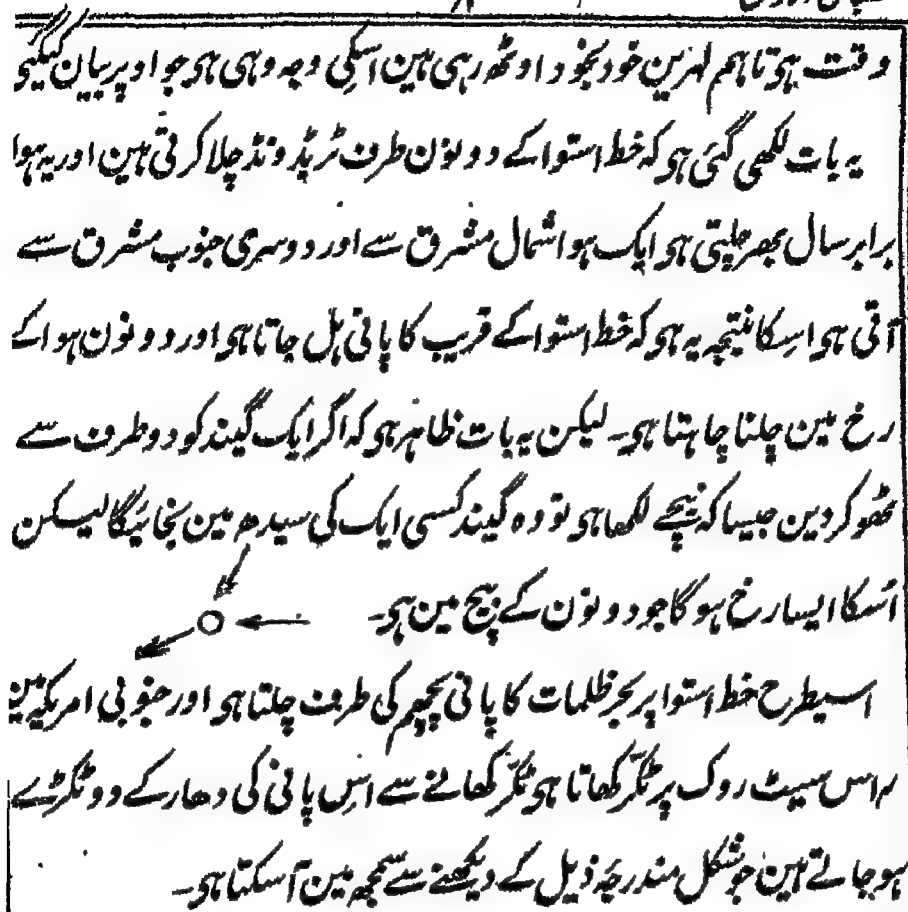 وقت ہوتا ہم لہرین خود بخود اوٹھ رہی ہین اسکی وجہ وہی ہی جو اوپر بیان کیگئی
یہ بات لکھی گئی ہی کہ خط استوا کے دونون طرف ٹریڈ ونڈ چلا کرتی ہین اور یہ ہوا
برابر سال بھر چلتی ہی ایک ہوا شمال مشرق سے اور دوسری جنوب مشرق سے
آتی ہی اسکا نتیجہ یہ ہی کہ خط استوا کے قریب کا پانی ہل جاتا ہی اور دونون ہوا کے
رخ مین چلنا چاہتا ہی۔ لیکن یہ بات ظاہر ہی کہ اگر ایک گیند کو دو طرف سے
ٹھوکر دین جیسا کہ نیچے لکھا ہی تو وہ گیند کسی ایک کی سیدھ مین نجائیگا لیکن
اسکا ایسا رخ ہوگا جو دونون کے بیچ مین ہی۔
اسیطرح خط استوا پر بحر ظلمات کا پانی پچھم کی طرف چلتا ہی اور جنوبی امریکہ مین
راس سینٹ روک پر ٹکر کھاتا ہی ٹکر کھانے سے اس پانی کی دھار کے دو ٹکڑے
ہو جاتے ہین جو شکل مندرجہ ذیل کے دیکھنے سے سمجھ مین آسکتا ہی۔